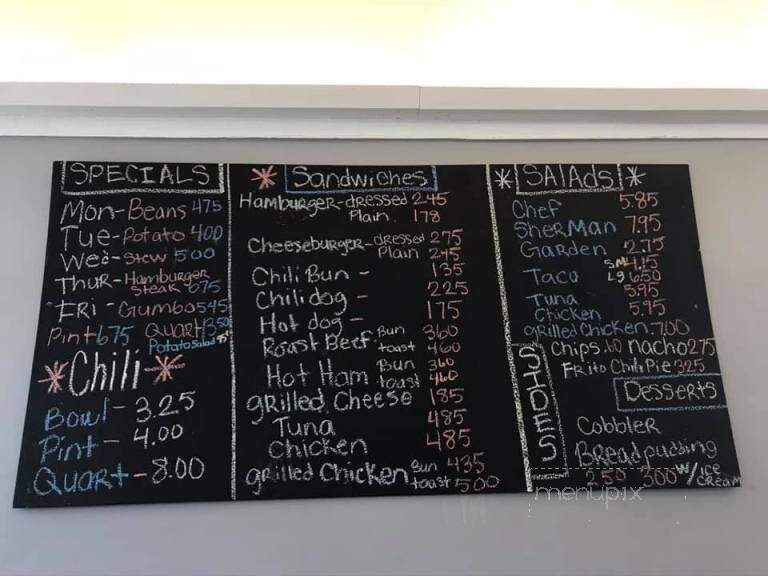 SPECIALS
Mon- Beans 475
Tue- Potato 400
Wed- Stew 500
Thur- Hamburger
steak 675
Fri- Gumbo 545
Pint 675 Quart 1350
Potato Salad
*Chili*
Bowl- 3.25
Pint- 4.00
Quart- 8.00
* Sandwiches
Hamburger-dressed 245
Plain 178
Cheeseburger-dressed 275
Plain 245
Chili Bun - 135
Chili dog - 225
Hot dog - 175
Roast Beef Bun 360
toast 460
Hot Ham Bun 360
toast 460
grilled Cheese 185
Tuna 485
Chicken 485
grilled Chicken Bun 435
toast 500
* SALAds *
Chef 5.85
SherMan 7.95
Garden 2.75
Taco SM 4.15
Lg 6.50
Tuna 5.95
Chicken 5.95
grilled Chicken 7.00
SIDES
Chips .60 nacho 275
Frito Chili Pie 325
Desserts
Cobbler
Bread pudding
250 300 w/ice
cream
menupix